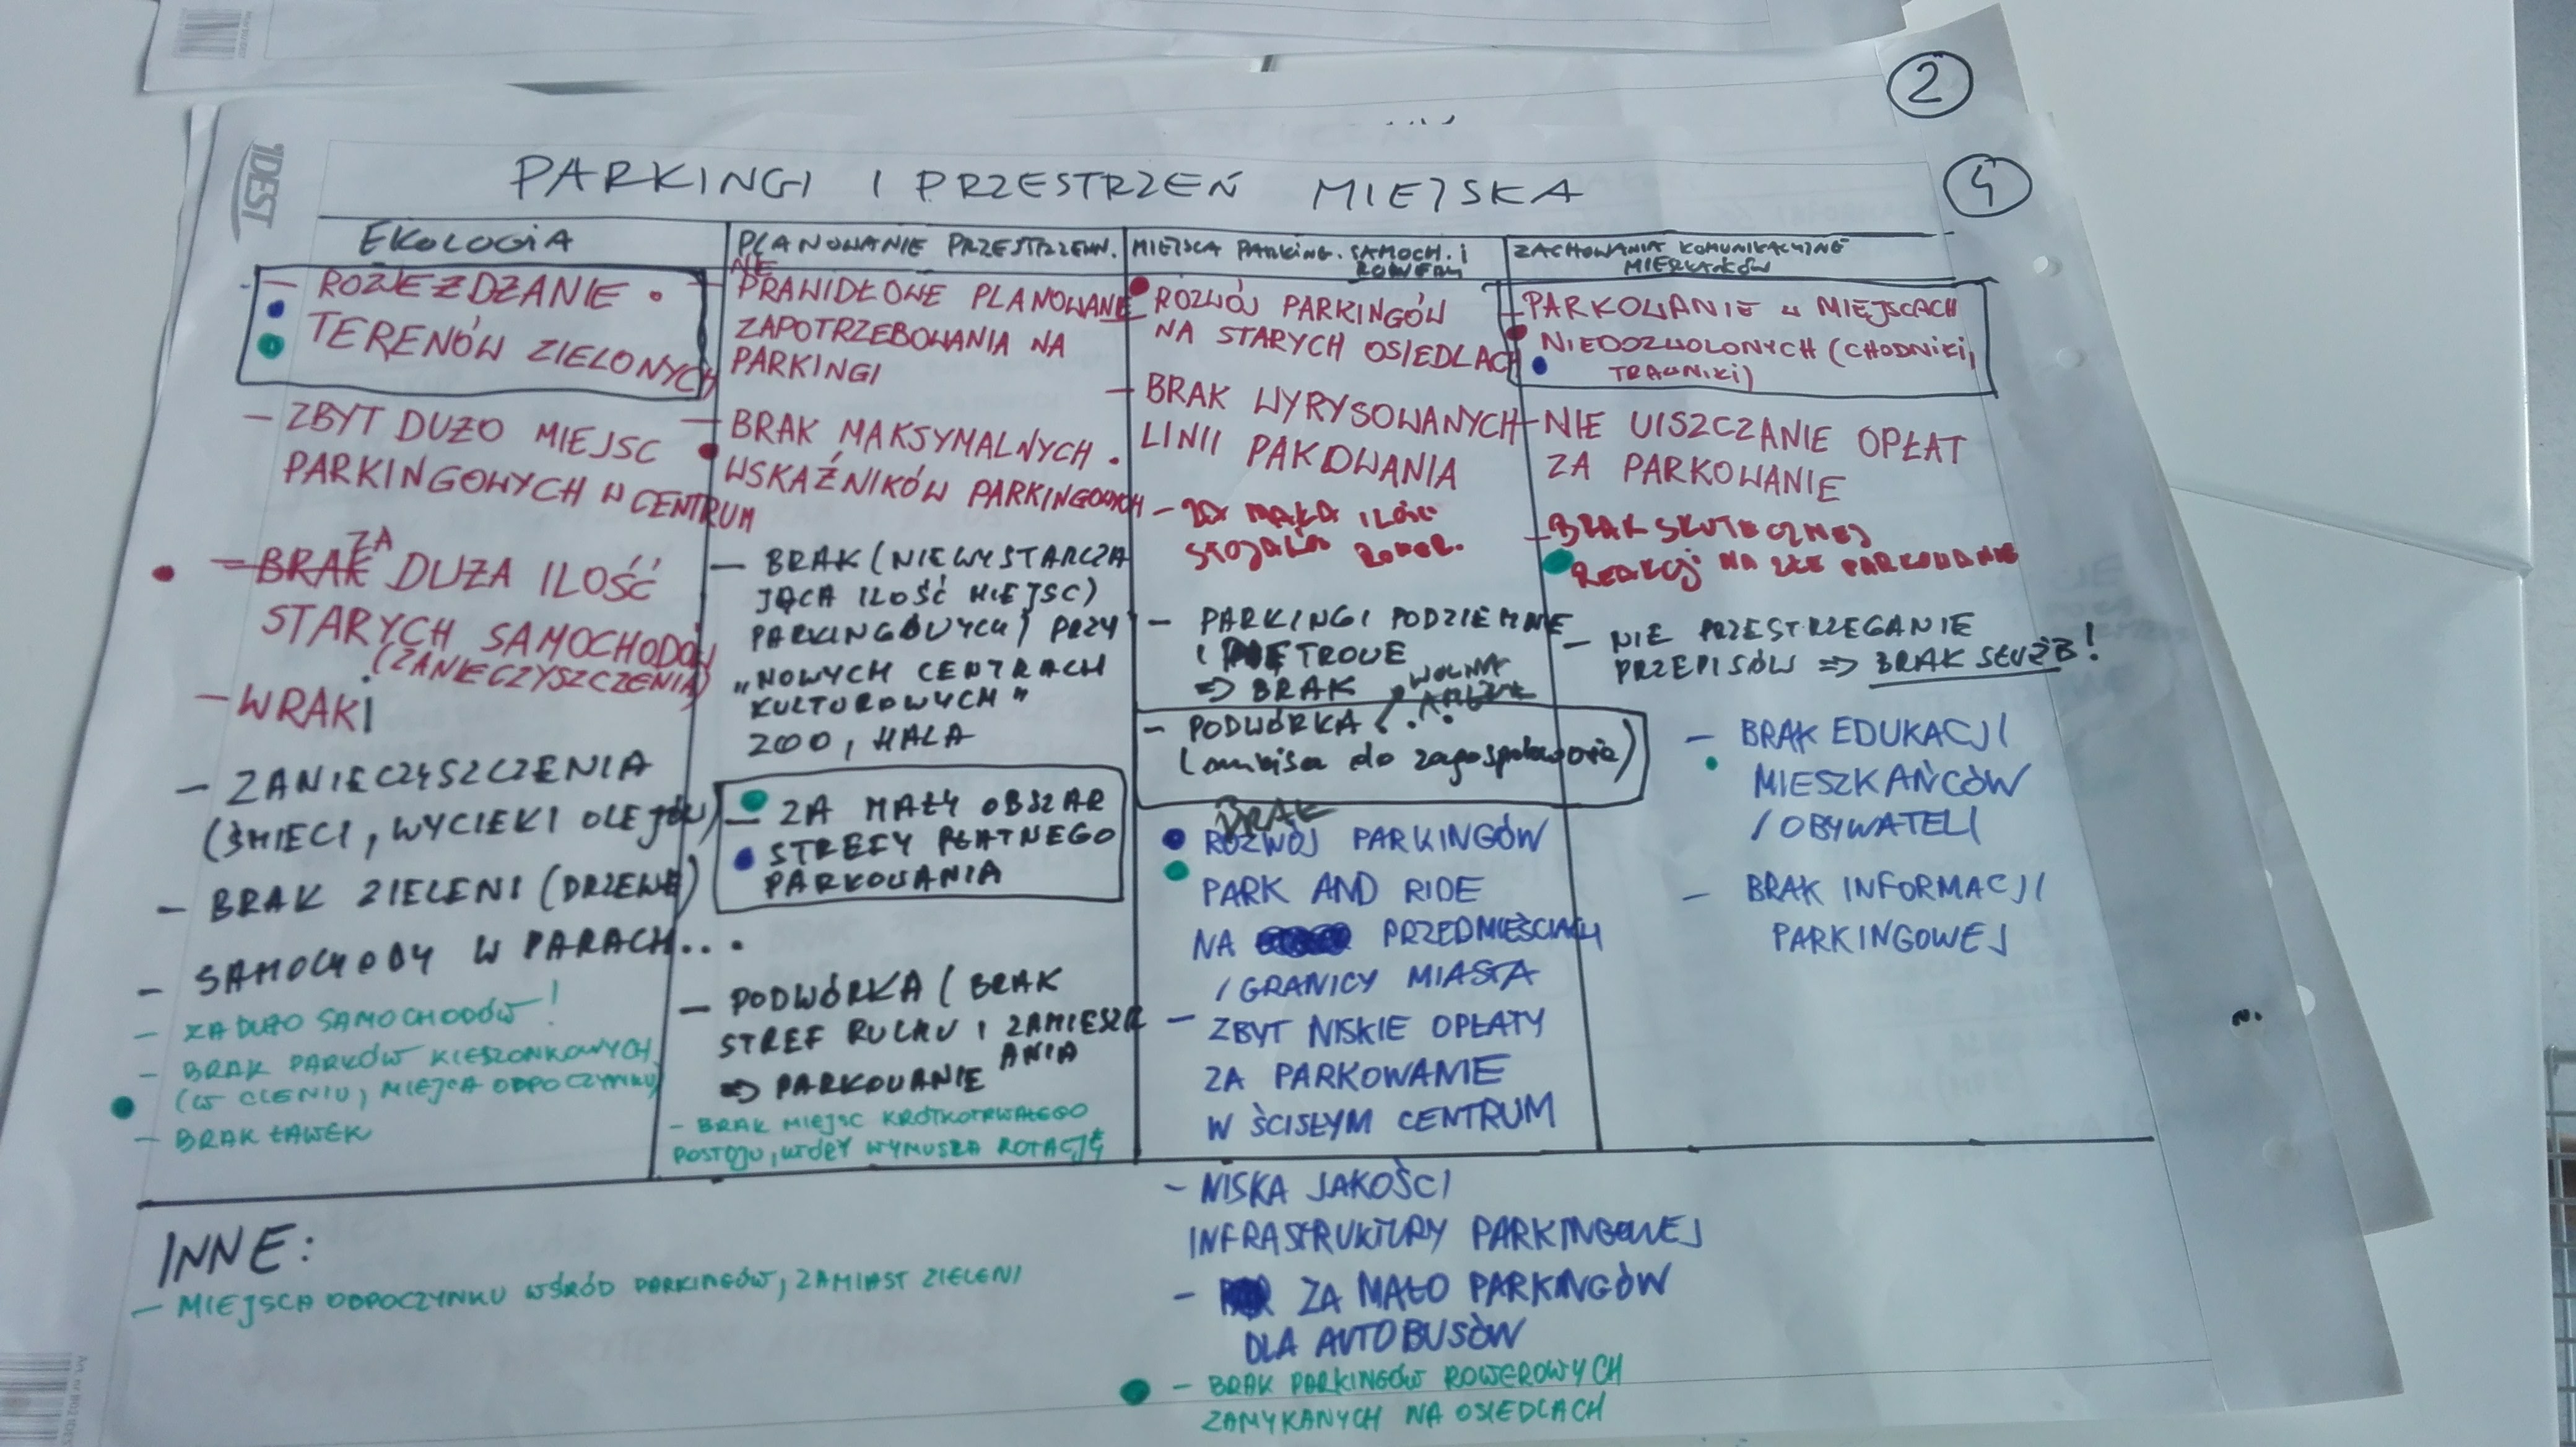 2
4
1DEST
PARKINGI I PRZESTRZEŃ MIEJSKA
EKOLOGIA
- ROZJEŻDZANIE
TERENÓW ZIELONYCH
- ZBYT DUŻO MIEJSC
PARKINGOWYCH W CENTRUM
- BRAK ZA DUŻA ILOŚĆ
STARYCH SAMOCHODÓW
(ZANIECZYSZCZENIA)
- WRAKI
- ZANIECZYSZCZENIA
(ŚMIECI, WYCIEKI OLEJÓW)
- BRAK ZIELENI (DRZEWA)
- SAMOCHODY W PARACH...
- ZA DUŻO SAMOCHODÓW!
- BRAK PARKÓW KIESZONKOWYCH
(W CIENIU, MIEJSCA ODPOCZYNKU)
- BRAK ŁAWEK
PLANOWANIE PRZESTRZENN.
NIE
- PRAWIDŁOWE PLANOWANE
ZAPOTRZEBOWANIA NA
PARKINGI
- BRAK MAKSYMALNYCH
WSKAŹNIKÓW PARKINGOWYCH
- BRAK (NIEWYSTARCZA
JĄCA ILOŚĆ MIEJSC)
PARKINGOWYCH) PRZY
"NOWYCH CENTRACH
KULTUROWYCH"
ZOO, HALA
- ZA MAŁY OBSZAR
STREFY PŁATNEGO
PARKOWANIA
- PODWÓRKA (BRAK
STREF RUCHU I ZAMIESZK
ANIA
⇒ PARKOWANIE
- BRAK MIEJSC KRÓTKOTRWAŁEGO
POSTOJU, WYMUSZA ROTACJĘ
MIEJSCA PARKING. SAMOCH. i
ROWERY
ROZWÓJ PARKINGÓW
NA STARYCH OSIEDLACH
- BRAK WYRYSOWANYCH
LINII PAKOWANIA
- ZA MAŁA ILOŚĆ
STOJAKÓW ROWER.
- PARKINGI PODZIEMNE
I PIĘTROWE
⇒ BRAK
- PODWÓRKA WOLNA
( do zagospodarowania)
BRAK
ROZWÓJ PARKINGÓW
PARK AND RIDE
NA PRZEDMIEŚCIACH
/ GRANICY MIASTA
- ZBYT NISKIE OPŁATY
ZA PARKOWANIE
W ŚCISŁYM CENTRUM
- NISKA JAKOŚCI
INFRASTRUKTURY PARKINGOWEJ
- ZA MAŁO PARKINGÓW
DLA AUTOBUSÓW
- BRAK PARKINGÓW ROWEROWYCH
ZAMYKANYCH NA OSIEDLACH
ZACHOWANIA KOMUNIKACYJNE
MIESZKAŃCÓW
- PARKOWANIE W MIEJSCACH
NIEDOZWOLONYCH (CHODNIKI,
TRAWNIKI)
- NIE UISZCZANIE OPŁAT
ZA PARKOWANIE
- BRAK SKUTECZNEJ
REAKCJI NA ZŁE PARKOWANIE
- NIE PRZESTRZEGANIE
PRZEPISÓW ⇒ BRAK SŁUŻB!
- BRAK EDUKACJI
MIESZKAŃCÓW
/ OBYWATELI
- BRAK INFORMACJI
PARKINGOWEJ
INNE:
- MIEJSCA ODPOCZYNKU WŚRÓD PARKINGÓW, ZAMIAST ZIELENI